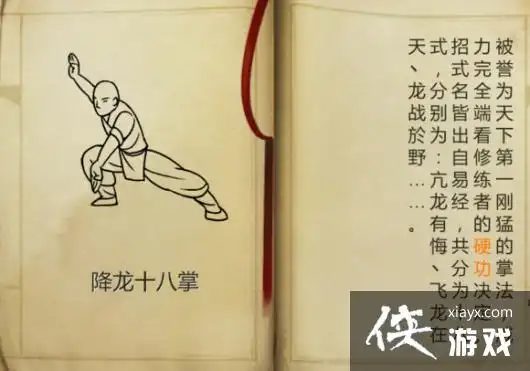 降龙十八掌
被誉为天下第一刚猛的掌法，
力完全端看修练者的硬功决定
招式名皆出自易经，共分为
式，分别为：亢龙有悔、飞龙在
天、龙战於野……。
侠游戏
xiayx.com